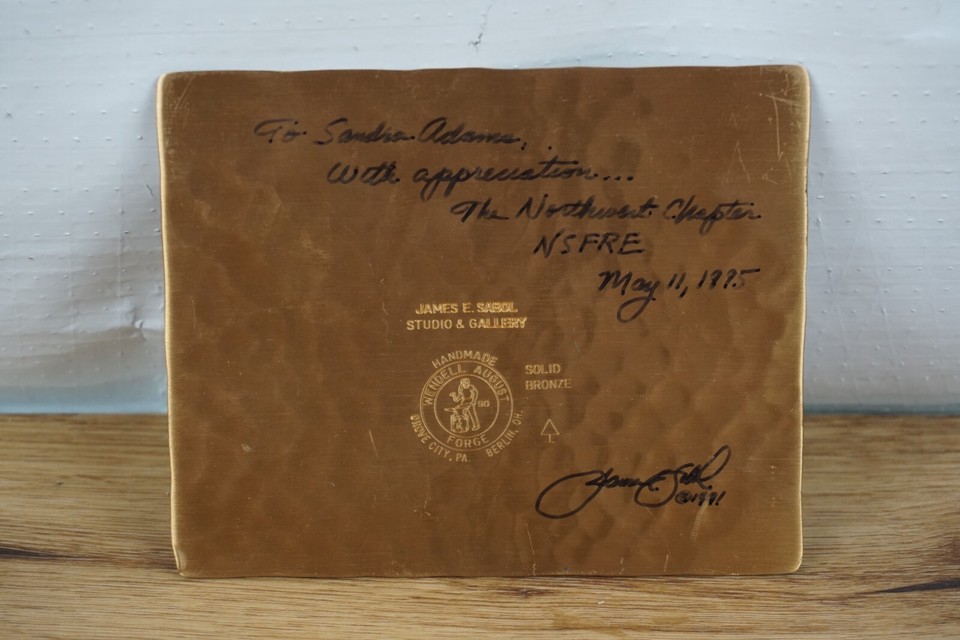 To Sandra Adams,
With appreciation...
The Northwest Chapter
NSFRE
May 11, 1995
JAMES E. SABOL
STUDIO & GALLERY
HANDMADE
WENDELL AUGUST
FORGE
GROVE CITY, PA. BERLIN, OH.
SOLID
BRONZE
James E. Sabol
©1991